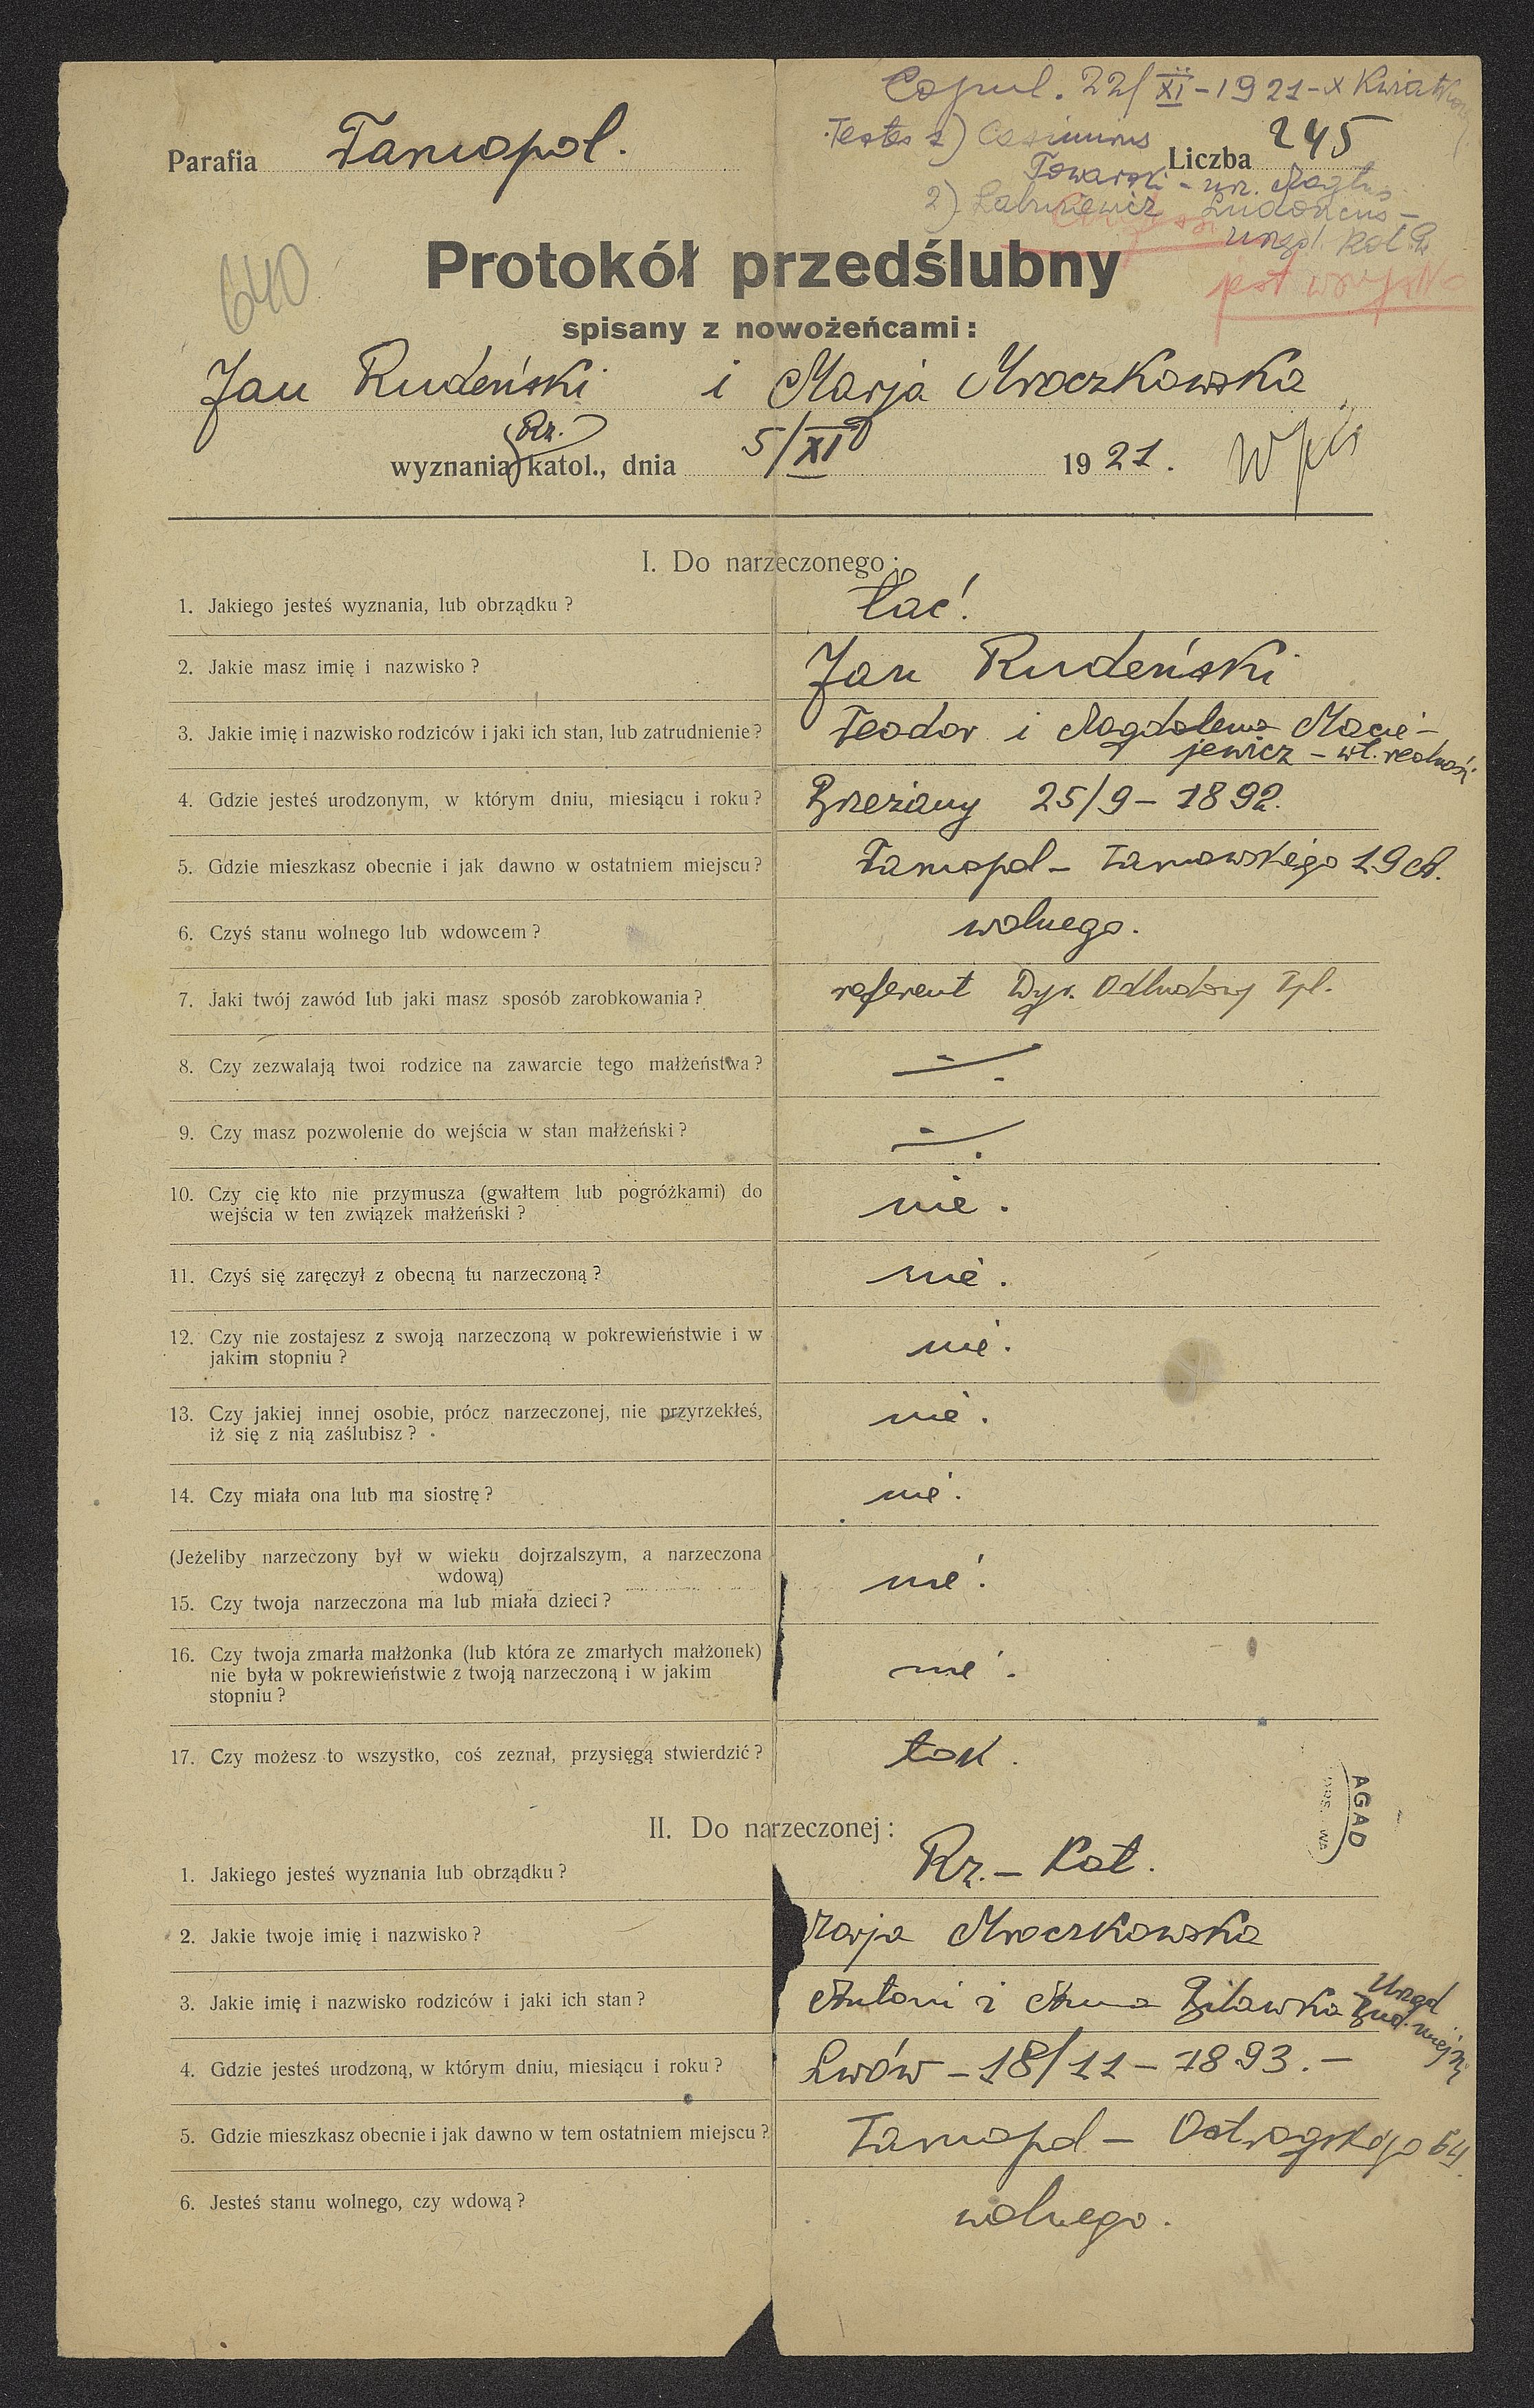 Copul. 22/XI-1921-x Kwiatkow
Testes 1) Casimirus
Parafia Tarnopol. Liczba 245
Towarski - urz. Magist
2)
Ludovicus -
640
Protokół przedślubny
urzęd. kol.
jest wszystko
spisany z nowożeńcami:
Jan Rudeński i Marja Mroczkowska
Rz.
wyznania katol., dnia 5/XI 1921.
I. Do narzeczonego:
1. Jakiego jesteś wyznania, lub obrządku? łać.
2. Jakie masz imię i nazwisko? Jan Rudeński
3. Jakie imię i nazwisko rodziców i jaki ich stan, lub zatrudnienie? Teodor i Magdalena Macie-
jewicz - wł. realnośc.
4. Gdzie jesteś urodzonym, w którym dniu, miesiącu i roku? Brzeżany 25/9 - 1892.
5. Gdzie mieszkasz obecnie i jak dawno w ostatniem miejscu? Tarnopol - Tarnowskiego 19
6. Czyś stanu wolnego lub wdowcem? wolnego.
7. Jaki twój zawód lub jaki masz sposób zarobkowania? referent Dyr. Odbudowy Tpl.
8. Czy zezwalają twoi rodzice na zawarcie tego małżeństwa?
9. Czy masz pozwolenie do wejścia w stan małżeński?
10. Czy cię kto nie przymusza (gwałtem lub pogróżkami) do
wejścia w ten związek małżeński? nie.
11. Czyś się zaręczył z obecną tu narzeczoną? nie.
12. Czy nie zostajesz z swoją narzeczoną w pokrewieństwie i w
jakim stopniu? nie.
13. Czy jakiej innej osobie, prócz narzeczonej, nie przyrzekłeś,
iż się z nią zaślubisz? nie.
14. Czy miała ona lub ma siostrę? nie.
(Jeżeliby narzeczony był w wieku dojrzalszym, a narzeczona
wdową)
15. Czy twoja narzeczona ma lub miała dzieci? nie.
16. Czy twoja zmarła małżonka (lub która ze zmarłych małżonek)
nie była w pokrewieństwie z twoją narzeczoną i w jakim
stopniu? nie.
17. Czy możesz to wszystko, coś zeznał, przysięgą stwierdzić? tak.
AGAD
II. Do narzeczonej:
1. Jakiego jesteś wyznania lub obrządku? Rz. - Kat.
2. Jakie twoje imię i nazwisko? Marja Mroczkowska
3. Jakie imię i nazwisko rodziców i jaki ich stan? Antoni i Anna Bilawka Urzęd
Bud. miejs
4. Gdzie jesteś urodzoną, w którym dniu, miesiącu i roku? Lwów - 18/11 - 1893. -
5. Gdzie mieszkasz obecnie i jak dawno w tem ostatniem miejscu? Tarnopol - Ostrogskiego 64.
6. Jesteś stanu wolnego, czy wdową? wolnego.